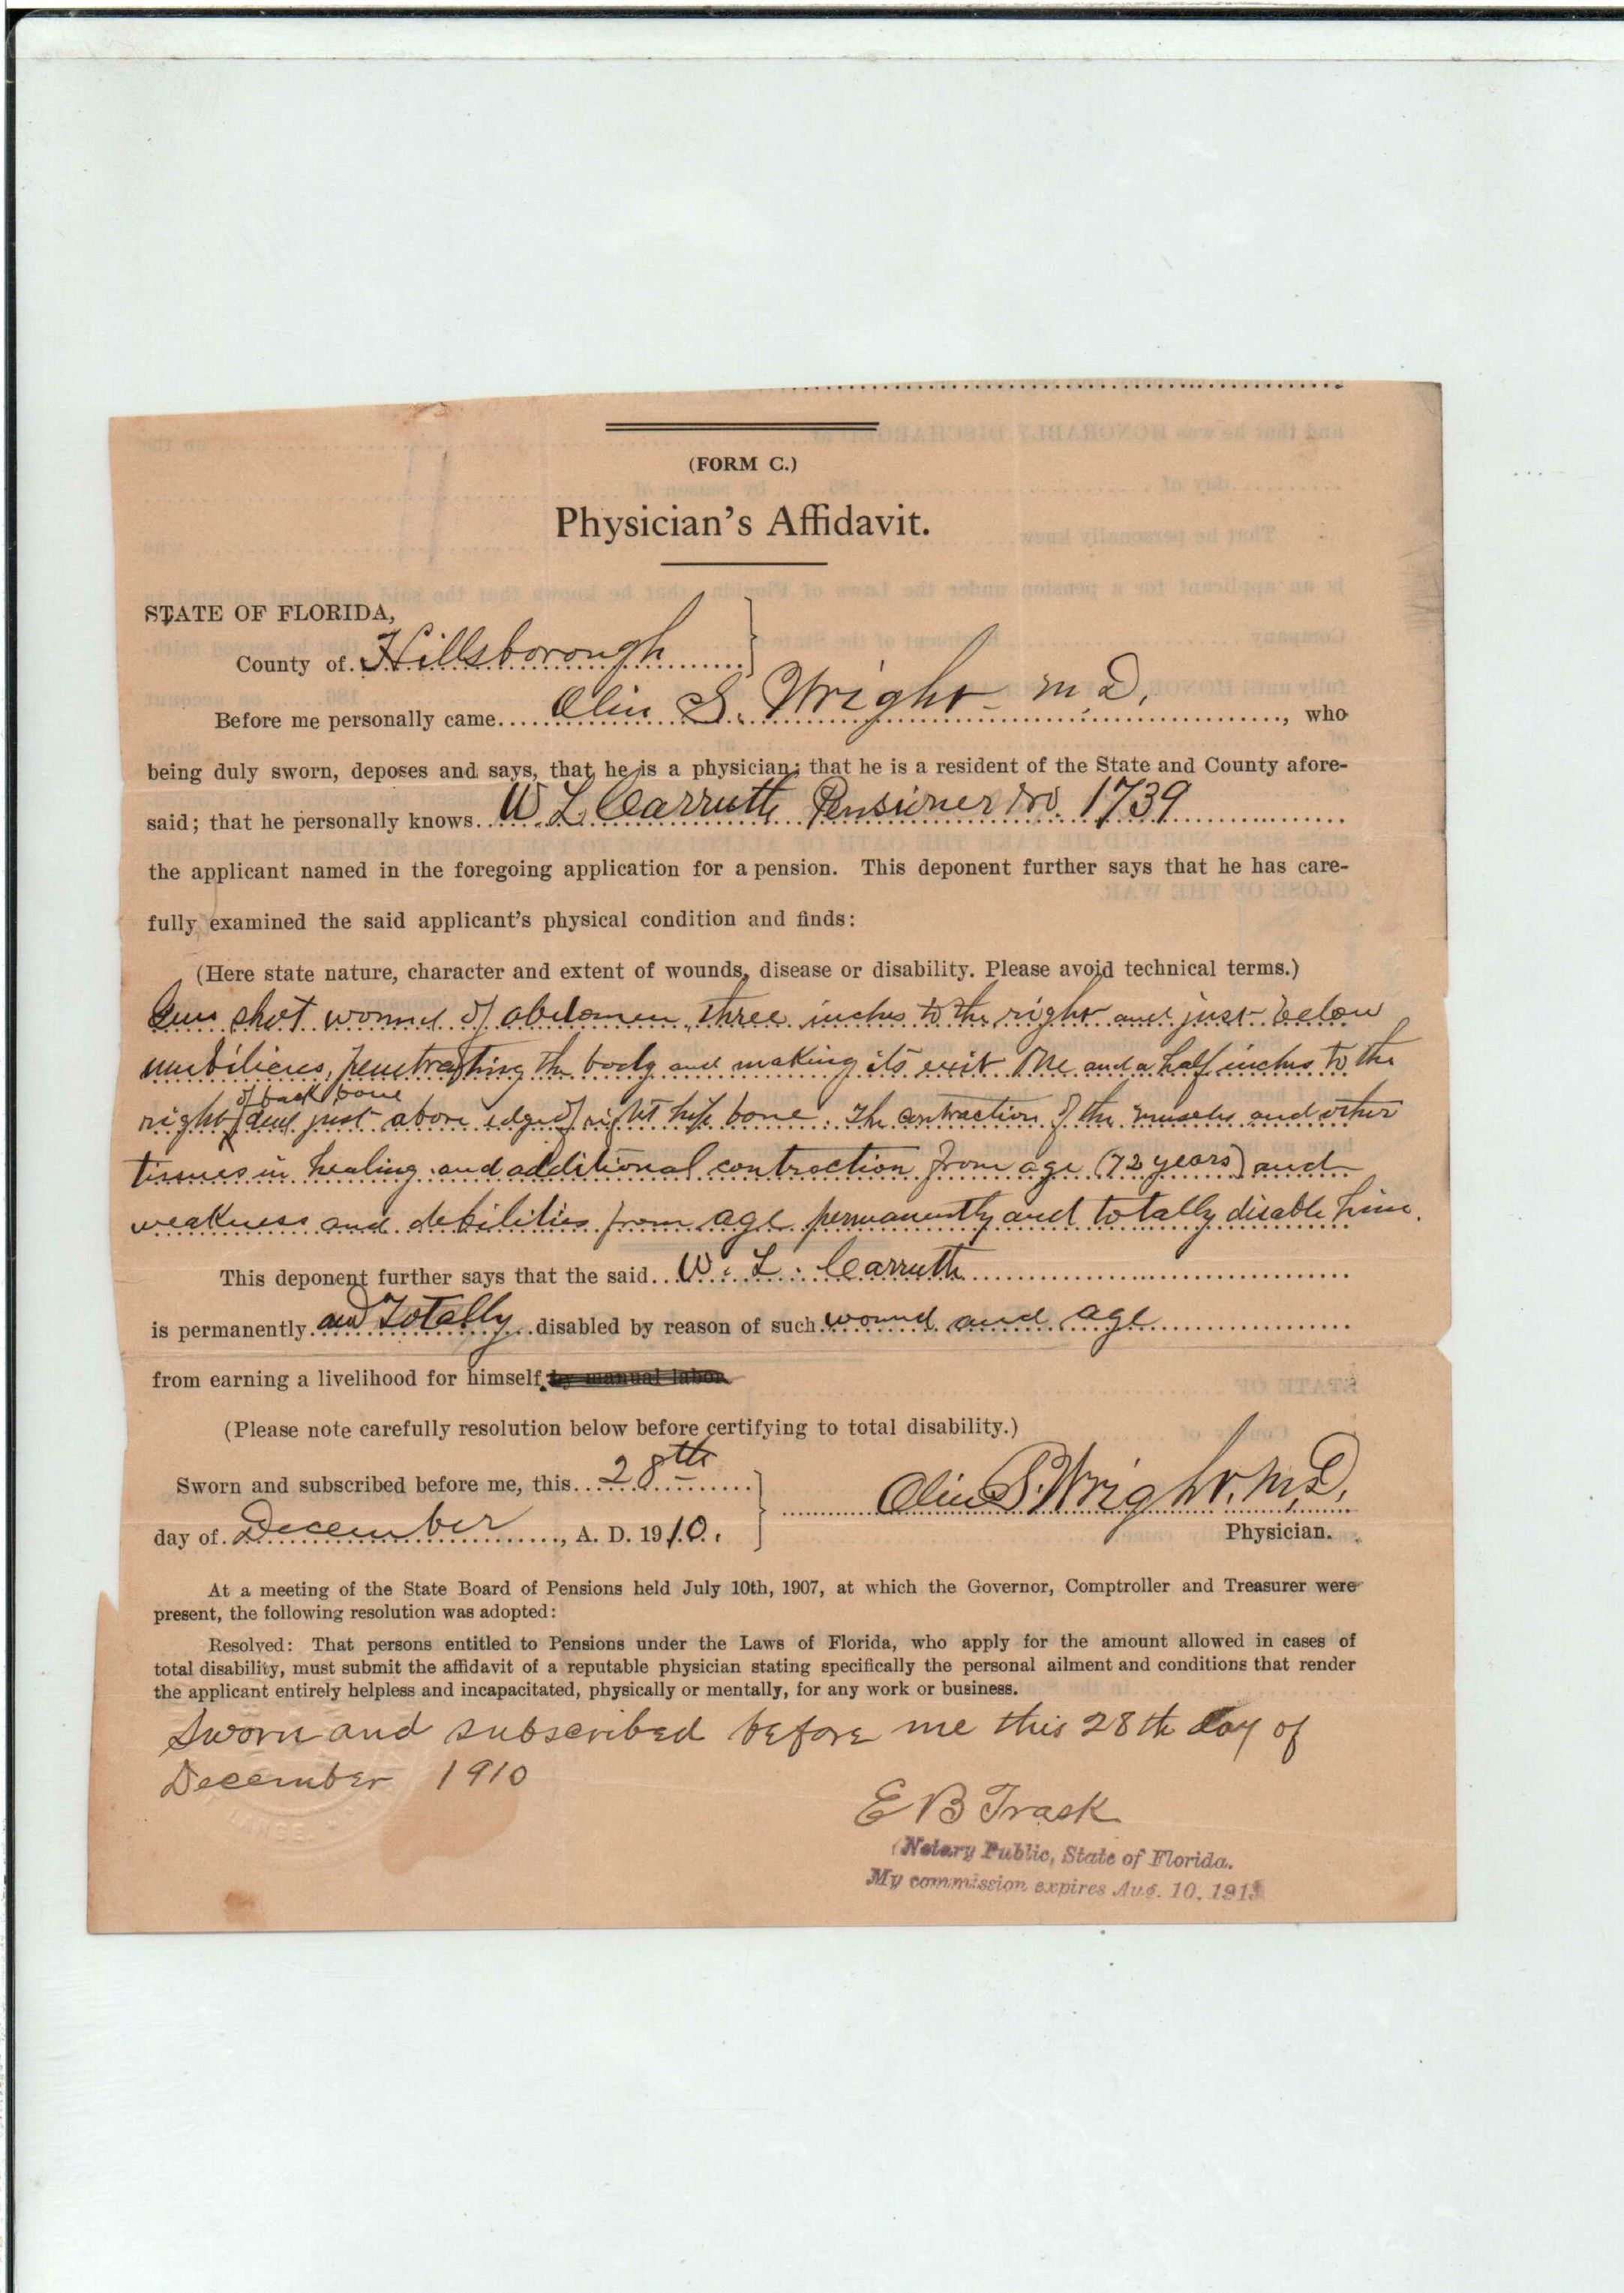 (FORM C.)
Physician's Affidavit.
STATE OF FLORIDA,
County of Hillsborough
Before me personally came Olin S. Wright M.D., who
being duly sworn, deposes and says, that he is a physician; that he is a resident of the State and County afore-
said; that he personally knows W L Carruth Pensioner No. 1739
the applicant named in the foregoing application for a pension. This deponent further says that he has care-
fully examined the said applicant's physical condition and finds:
(Here state nature, character and extent of wounds, disease or disability. Please avoid technical terms.)
Gun shot wound of abdomen, three inches to the right and just below
umbilicus, penetrating the body and making its exit one and a half inches to the
right of back bone and just above edge of right hip bone. The contraction of the muscles and other
tissues in healing and additional contraction from age (72 years) and
weakness and debilities from age permanently and totally disable him.
This deponent further says that the said W. L. Carruth
is permanently and totally disabled by reason of such wound and age
from earning a livelihood for himself by manual labor
(Please note carefully resolution below before certifying to total disability.)
Sworn and subscribed before me, this 28th
day of December, A. D. 1910.
Olin S. Wright, M.D.,
Physician.
At a meeting of the State Board of Pensions held July 10th, 1907, at which the Governor, Comptroller and Treasurer were
present, the following resolution was adopted:
Resolved: That persons entitled to Pensions under the Laws of Florida, who apply for the amount allowed in cases of
total disability, must submit the affidavit of a reputable physician stating specifically the personal ailment and conditions that render
the applicant entirely helpless and incapacitated, physically or mentally, for any work or business.
Sworn and subscribed before me this 28th day of
December 1910
E B Trask
Notary Public, State of Florida.
My commission expires Aug. 10, 191